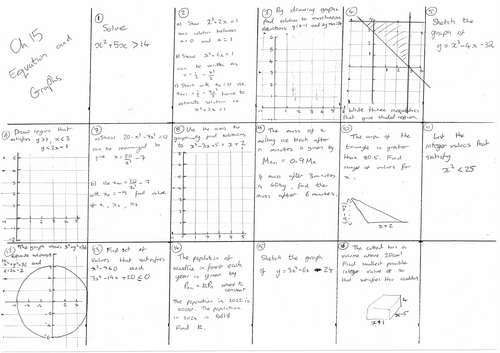 Ch 15
Equation and
Graphs
①
Solve
x² + 5x > 14
②
a) Show x³ + 2x = 1
has solution between
x = 0 and x = 1
b) Show
can be written as
c) Start with x₀ = 0 Use
hence to
estimate solution to
x³ + 2x = 1
③ By drawing graphs
find solution to simultaneous
equations
④
Write three inequalities
that give shaded region.
⑤
Sketch the
graph of
y = x² - 4x - 32
⑥ Draw region that
satisfies y > 1, x < 3
y < 2x - 1
⑦
a) Show 20 - x³ - 7x² = 0
can be rearranged to
give x = 20/x² - 7
b) Use xₙ₊₁ = 20/xₙ² - 7
with x₀ = -9 find value
of x₁, x₂, x₃
⑧ Use the axes to
graphically find solutions
to x² - 3x + 5 = x + 2
⑨ The mass of a
melting ice block after
n minutes is given by
Mₙ₊₁ = 0.9 Mₙ
If mass after 3 minutes
is 40kg, find the
mass after 6 minutes.
⑩
The area of the
triangle is greater
than 80.5. Find
range of values for
x.
x + 2
⑪
List the
integer values that
satisfy
x² < 25
⑫
The graph shows x² + y² = 36
⑬ Find set of
values that satisfies
x² - 9 ≤ 0 and
3x² - 19x + 20 ≤ 0
⑭
The population of
woodlice in forest each
year is given by
Pₙ₊₁ = kPₙ where k
constant
The population in 2022 is
5000. The population
in 2024 is 5618
Find k.
⑮
Sketch the graph
of y = 3x² - 6x - 24
The cuboid has a
volume above 20cm³
Find smallest possible
integer value of x
that satisfies this condition
x + 1
x - 5